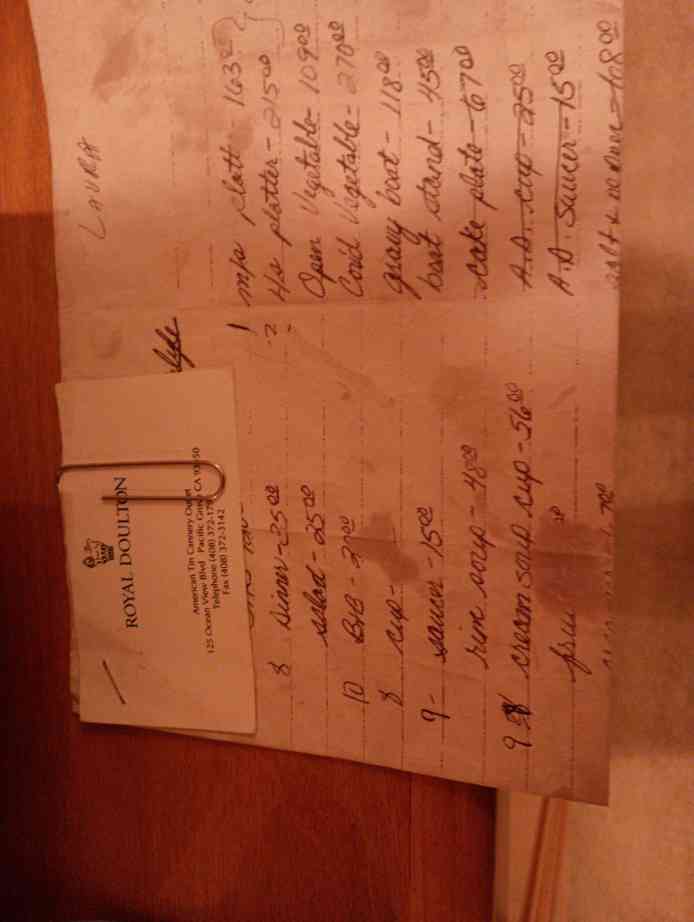 LAURA
ROYAL DOULTON
American Tin Cannery Outlet
125 Ocean View Blvd Pacific Grove CA
Telephone (408) 372-
Fax (408) 372-3142
8 dinner - 25.00
salad - 25.00
10 B+B -
8 cup -
9 - saucer - 15.00
rim soup - 48.00
9 cream soup cup - 56.00
1 m/s platt - 163.00
2 4s platter - 215.00
Open Vegetable - 109.00
Cov'd Vegetable - 270.00
gravy boat - 118.00
boat stand - 45.00
cake plate - 67.00
A.D. cup - 25.00
A.D. Saucer - 15.00